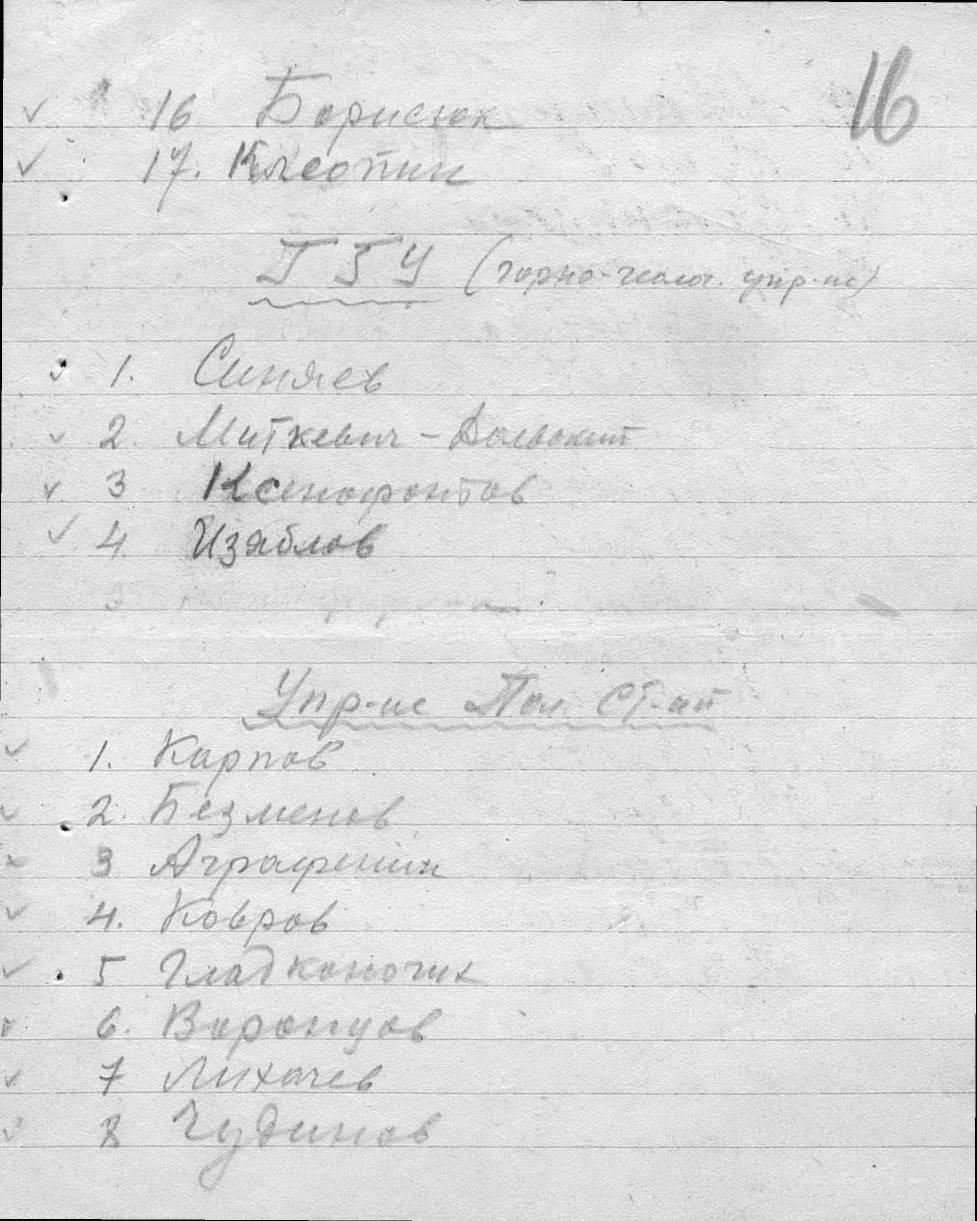 16
16 Борисюк
17. Клеопин
ГГУ (горно-геолог. упр-ие)
1. Синяев
2. Миткевич-
3 Ксенофонтов
4 Изяблов
5
Упр-ие Пол.
1. Карпов
2. Безменов
3 Аграфенин
4. Ковров
5 Гладкопочих
6. Воронцов
7 Лихачев
8 Чудинов